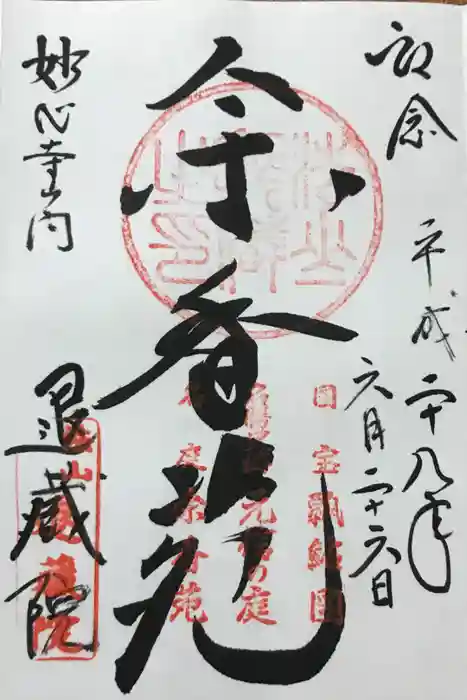 記念
平成二十八年
六月二十六日
余香苑
妙心寺山内
退蔵院
国宝瓢鮎図
元信の庭
庭余香苑